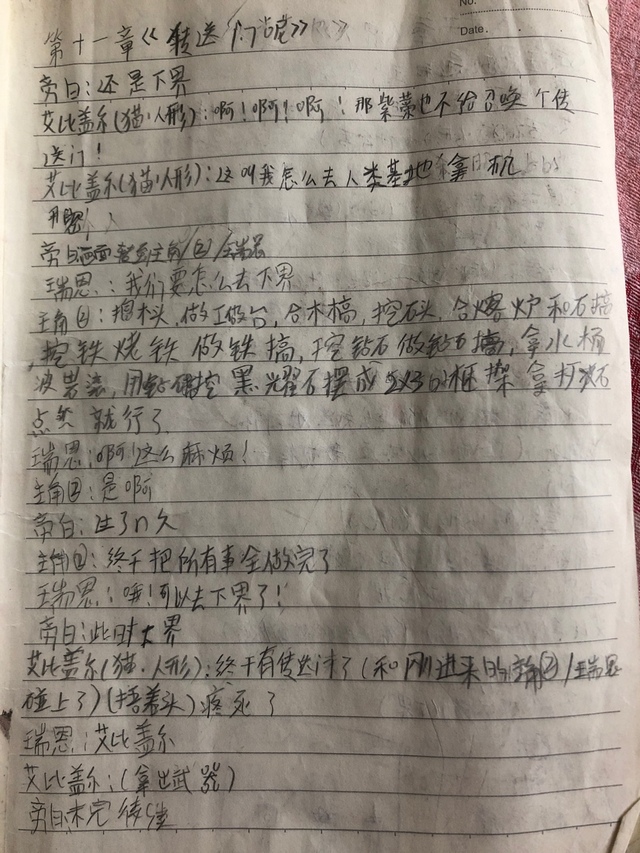 No.
Date.
第十一章《转送门呢》
旁白：还是下界
艾比盖尔(猫·人形)：啊！啊！啊！那紫菜也不给召唤个传
送门！
艾比盖尔(猫·人形)：这叫我怎么去人类基地拿机
密
旁白画面 主角②/瑞恩
瑞恩：我们要怎么去下界
主角②：撸木头,做工做台,合木槁,挖石头,合熔炉和石搞
,挖铁烧铁做铁搞,挖钻石做钻石搞,拿水桶
浪岩浆,用钻 挖黑耀石摆成2X3的框架拿打火石
点然就行了
瑞恩:啊!这么麻烦!
主角②:是啊
旁白:过了n久
主角②:终于把所有事全做完了
瑞恩:哦!可以去下界了!
旁白:此时大界
艾比盖尔(猫·人形):终于有传送门了(和刚进来的主角②/瑞恩
碰上了)(捂着头)疼死了
瑞恩:艾比盖尔
艾比盖尔:(拿出武器)
旁白未完待续